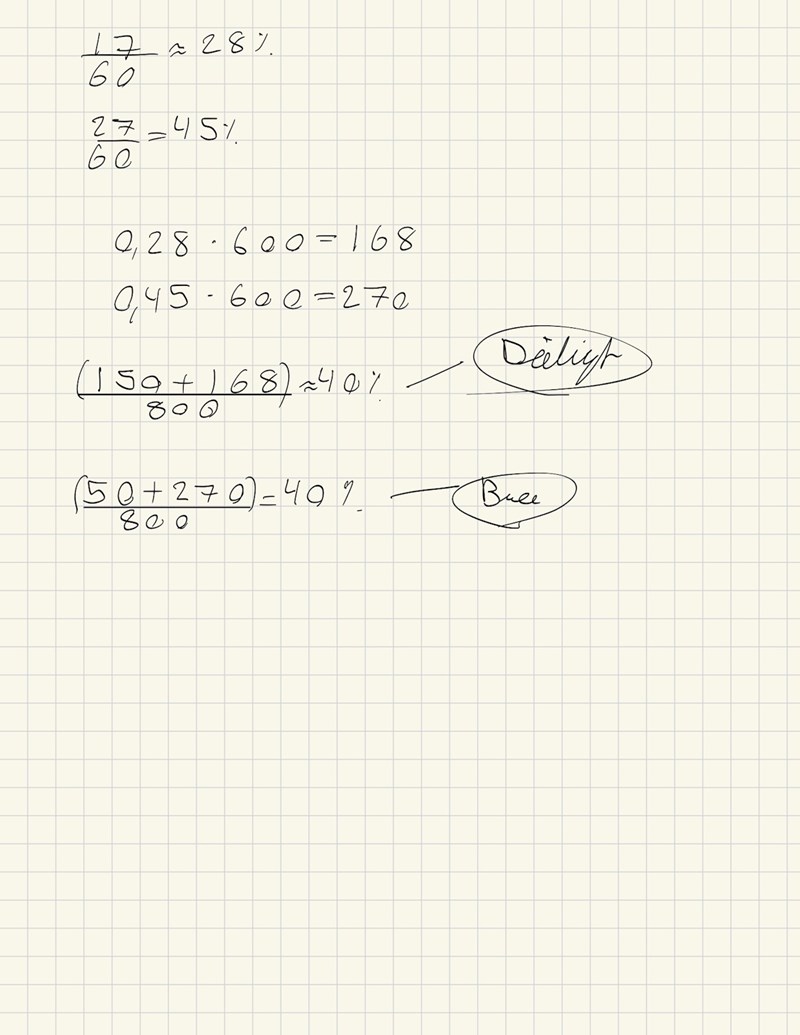 17/60 ≈ 28%
27/60 = 45%
0,28 · 600 = 168
0,45 · 600 = 270
(150 + 168)/800 ≈ 40% Dåligt
(50 + 270)/800 = 40%